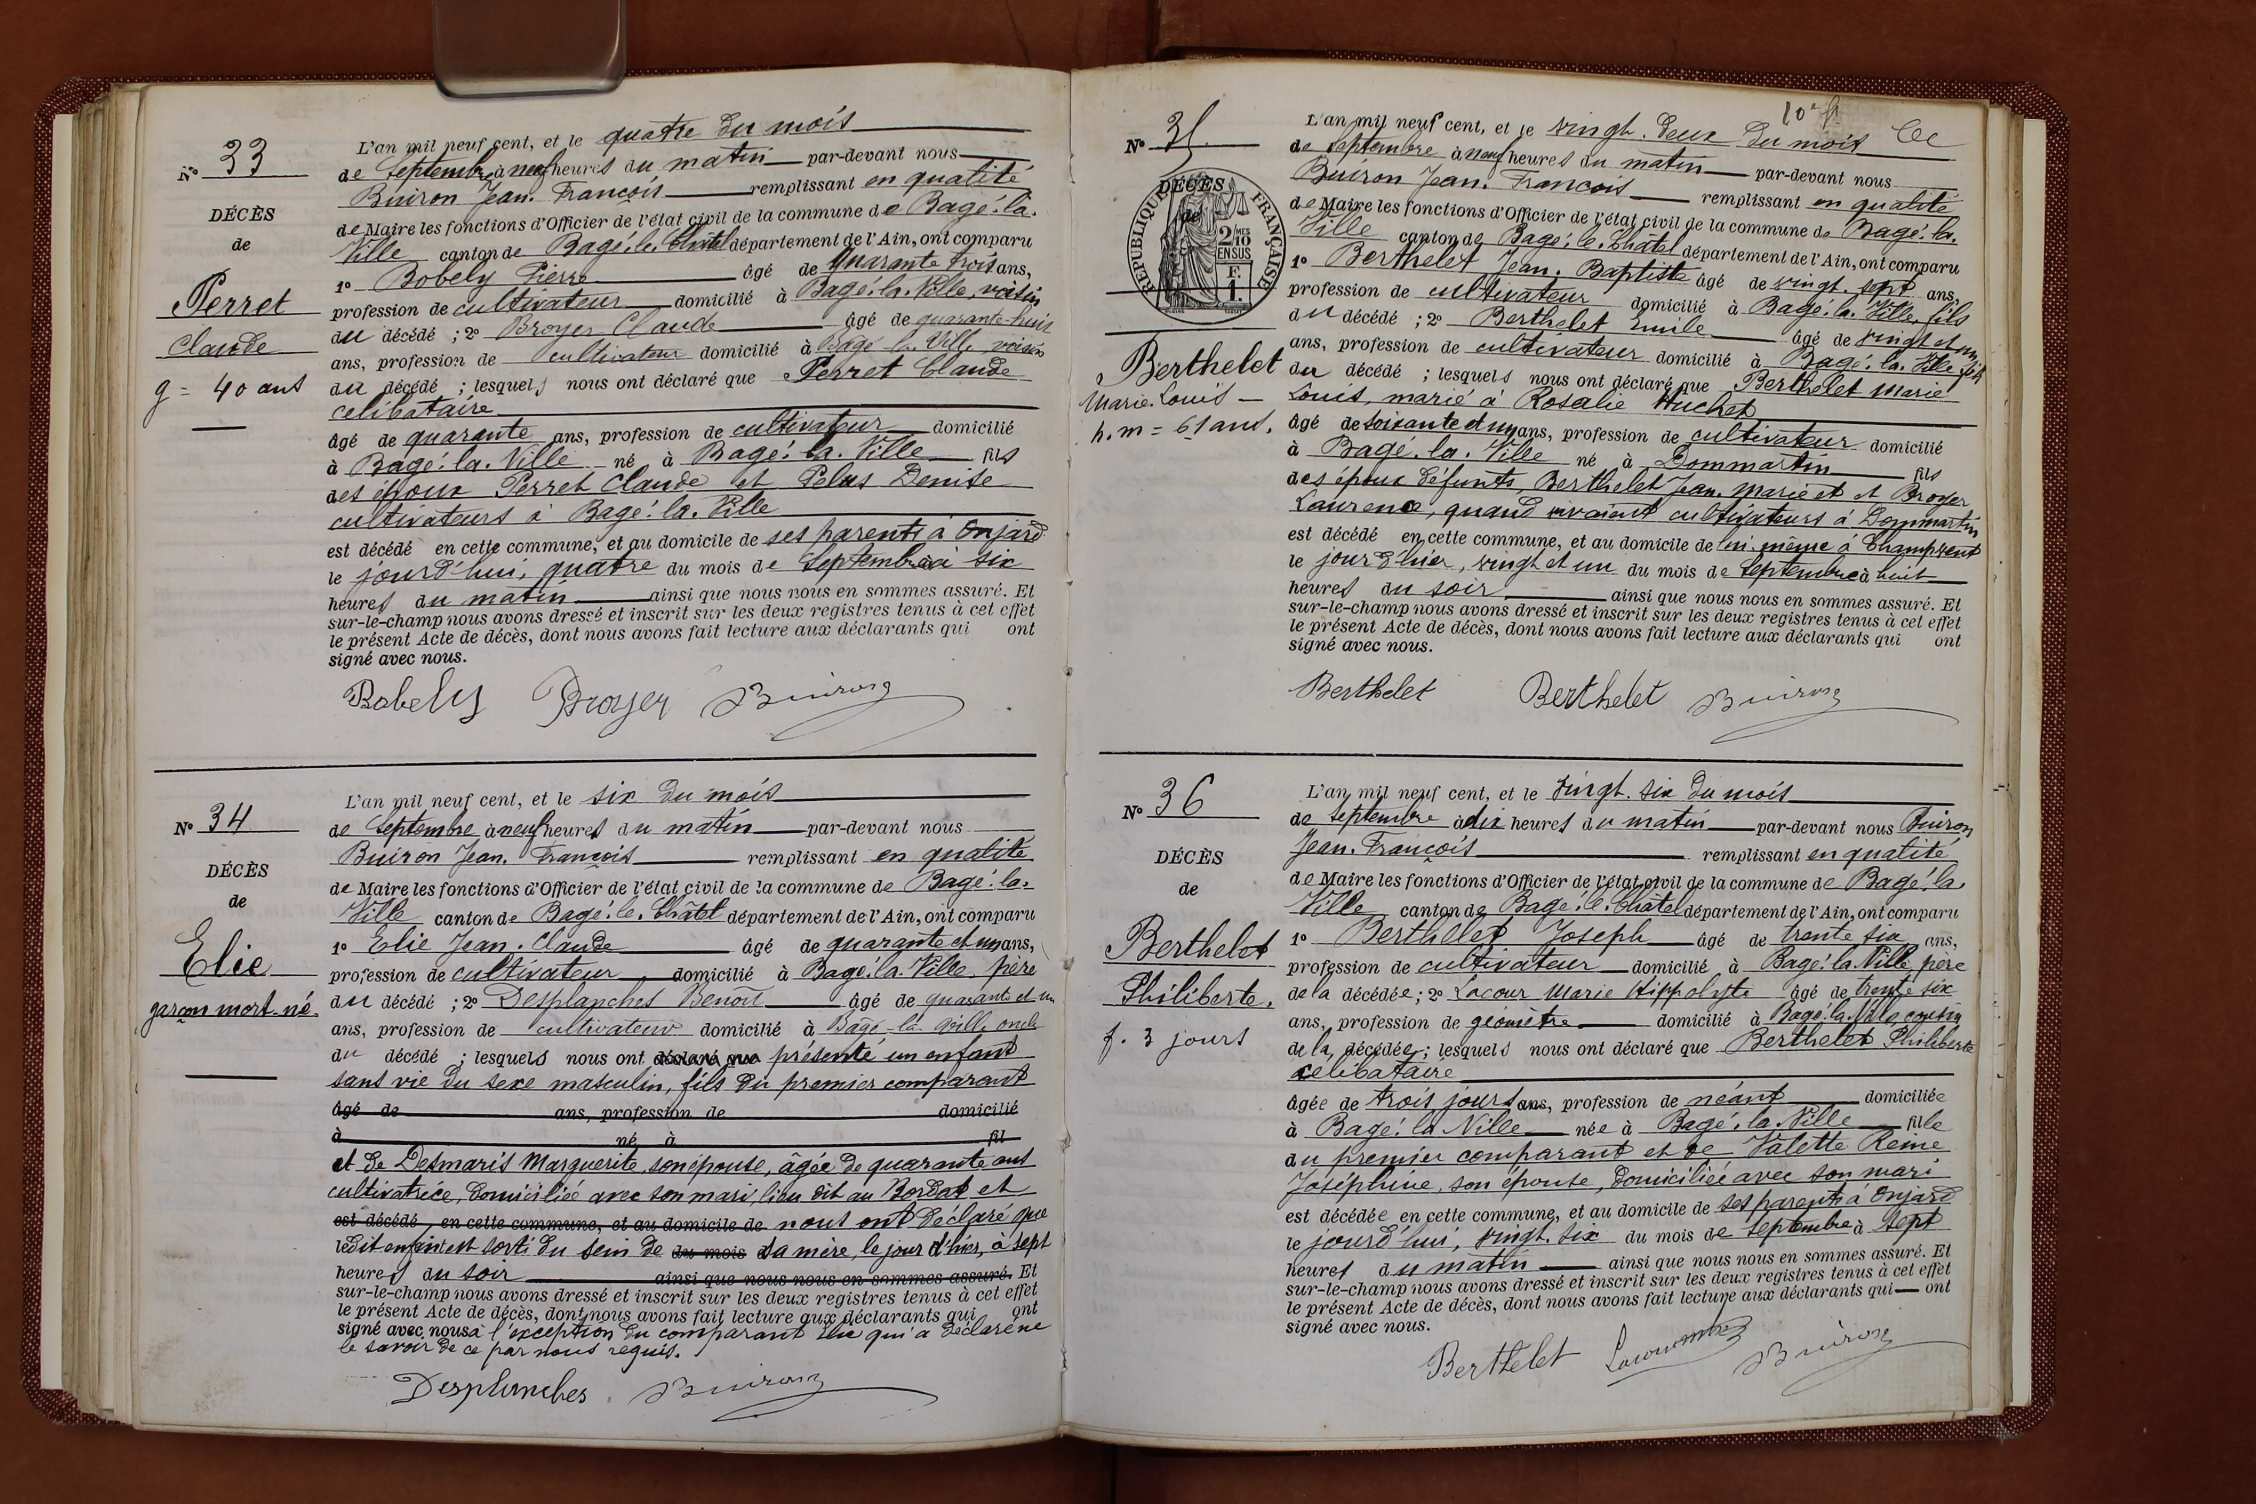 N° 33
DÉCÈS
de
Perret
Claude
g = 40 ans
L'an mil neuf cent, et le quatre du mois
de Septembre à neuf heures du matin par-devant nous
Buiron Jean. François remplissant en qualité
de Maire les fonctions d'Officier de l'état civil de la commune de Bagé-la-
Ville canton de Bagé-le-Châtel département de l'Ain, ont comparu
1° Bobely Pierre âgé de quarante trois ans,
profession de cultivateur domicilié à Bagé-la-Ville, voisin
du décédé ; 2° Broyer Claude âgé de quarante-huit
ans, profession de cultivateur domicilié à Bagé-la-Ville voisin
du décédé ; lesquels nous ont déclaré que Perret Claude
célibataire
âgé de quarante ans, profession de cultivateur domicilié
à Bagé-la-Ville né à Bagé-la-Ville fils
des époux Perret Claude et Pelus Denise
cultivateurs à Bagé-la-Ville
est décédé en cette commune, et au domicile de ses parents à Onjard
le jourd'hui, quatre du mois de Septembre à six
heures du matin ainsi que nous nous en sommes assuré. Et
sur-le-champ nous avons dressé et inscrit sur les deux registres tenus à cet effet
le présent Acte de décès, dont nous avons fait lecture aux déclarants qui ont
signé avec nous.
Bobely Broyer Buiron
N° 34
DÉCÈS
de
Elie
garçon mort-né
L'an mil neuf cent, et le six du mois
de Septembre à neuf heures du matin par-devant nous
Buiron Jean. François remplissant en qualité
de Maire les fonctions d'Officier de l'état civil de la commune de Bagé-la-
Ville canton de Bagé-le-Châtel département de l'Ain, ont comparu
1° Elie Jean-Claude âgé de quarante et un ans,
profession de cultivateur, domicilié à Bagé-la-Ville, père
du décédé ; 2° Desplanches Benoît âgé de quarante et un
ans, profession de cultivateur domicilié à Bagé-la-Ville oncle
du décédé ; lesquels nous ont déclaré que présenté un enfant
sans vie du sexe masculin, fils du premier comparant
âgé de ans, profession de domicilié
à né à fil
et de Desmaris Marguerite, son épouse, âgée de quarante ans
cultivatrice, domiciliée avec son mari, lieu dit au Bordat, et
est décédé, en cette commune, et au domicile de nous ont déclaré que
ledit enfant est sorti du sein de du mois sa mère, le jour d'hier, à sept
heures du soir ainsi que nous nous en sommes assuré. Et
sur-le-champ nous avons dressé et inscrit sur les deux registres tenus à cet effet
le présent Acte de décès, dont nous avons fait lecture aux déclarants qui ont
signé avec nous à l'exception du comparant Elie qui a déclaré ne
le savoir de ce par nous requis.
Desplanches. Buiron
10e f.
N° 35
DÉCÈS
de
RÉPUBLIQUE FRANÇAISE
2/10 MES
EN SUS
F.
1.
Berthelet
Marie. Louis
h. m = 61 ans.
L'an mil neuf cent, et le vingt-deux du mois
de Septembre à neuf heures du matin par-devant nous
Buiron Jean. François remplissant en qualité
de Maire les fonctions d'Officier de l'état civil de la commune de Bagé-la-
Ville canton de Bagé-le-Châtel département de l'Ain, ont comparu
1° Berthelet Jean. Baptiste âgé de vingt-sept ans,
profession de cultivateur domicilié à Bagé-la-Ville, fils
du décédé ; 2° Berthelet Emile âgé de vingt et un
ans, profession de cultivateur domicilié à Bagé-la-Ville fils
du décédé ; lesquels nous ont déclaré que Berthelet Marie
Louis, marié à Rosalie Huchet
âgé de soixante et un ans, profession de cultivateur domicilié
à Bagé-la-Ville né à Dommartin fils
des époux défunts, Berthelet Jean. Marie et et Broyer
Laurence, quand vivaient cultivateurs à Dommartin
est décédé en cette commune, et au domicile de lui-même à Champrent
le jour d'hier, vingt et un du mois de Septembre à huit
heures du soir ainsi que nous nous en sommes assuré. Et
sur-le-champ nous avons dressé et inscrit sur les deux registres tenus à cet effet
le présent Acte de décès, dont nous avons fait lecture aux déclarants qui ont
signé avec nous.
Berthelet Berthelet Buiron
N° 36
DÉCÈS
de
Berthelet
Philiberte.
f. 3 jours
L'an mil neuf cent, et le vingt-six du mois
de Septembre à dix heures du matin par-devant nous Buiron
Jean. François remplissant en qualité
de Maire les fonctions d'Officier de l'état civil de la commune de Bagé-la-
Ville canton de Bagé-le-Châtel département de l'Ain, ont comparu
1° Berthelet Joseph âgé de trente six ans,
profession de cultivateur domicilié à Bagé-la-Ville père
de la décédée ; 2° Lacour Marie Hippolyte âgé de trente six
ans, profession de géomètre domicilié à Bagé-la-Ville cousin
de la décédée ; lesquels nous ont déclaré que Berthelet Philiberte
célibataire
âgée de trois jours ans, profession de néant domiciliée
à Bagé-la-Ville née à Bagé-la-Ville fille
du premier comparant et de Valette Reine
Joséphine, son épouse, domiciliée avec son mari
est décédée en cette commune, et au domicile de ses parents à Onjard
le jourd'hui, vingt-six du mois de Septembre à sept
heures du matin ainsi que nous nous en sommes assuré. Et
sur-le-champ nous avons dressé et inscrit sur les deux registres tenus à cet effet
le présent Acte de décès, dont nous avons fait lecture aux déclarants qui ont
signé avec nous.
Berthelet Lacour Buiron